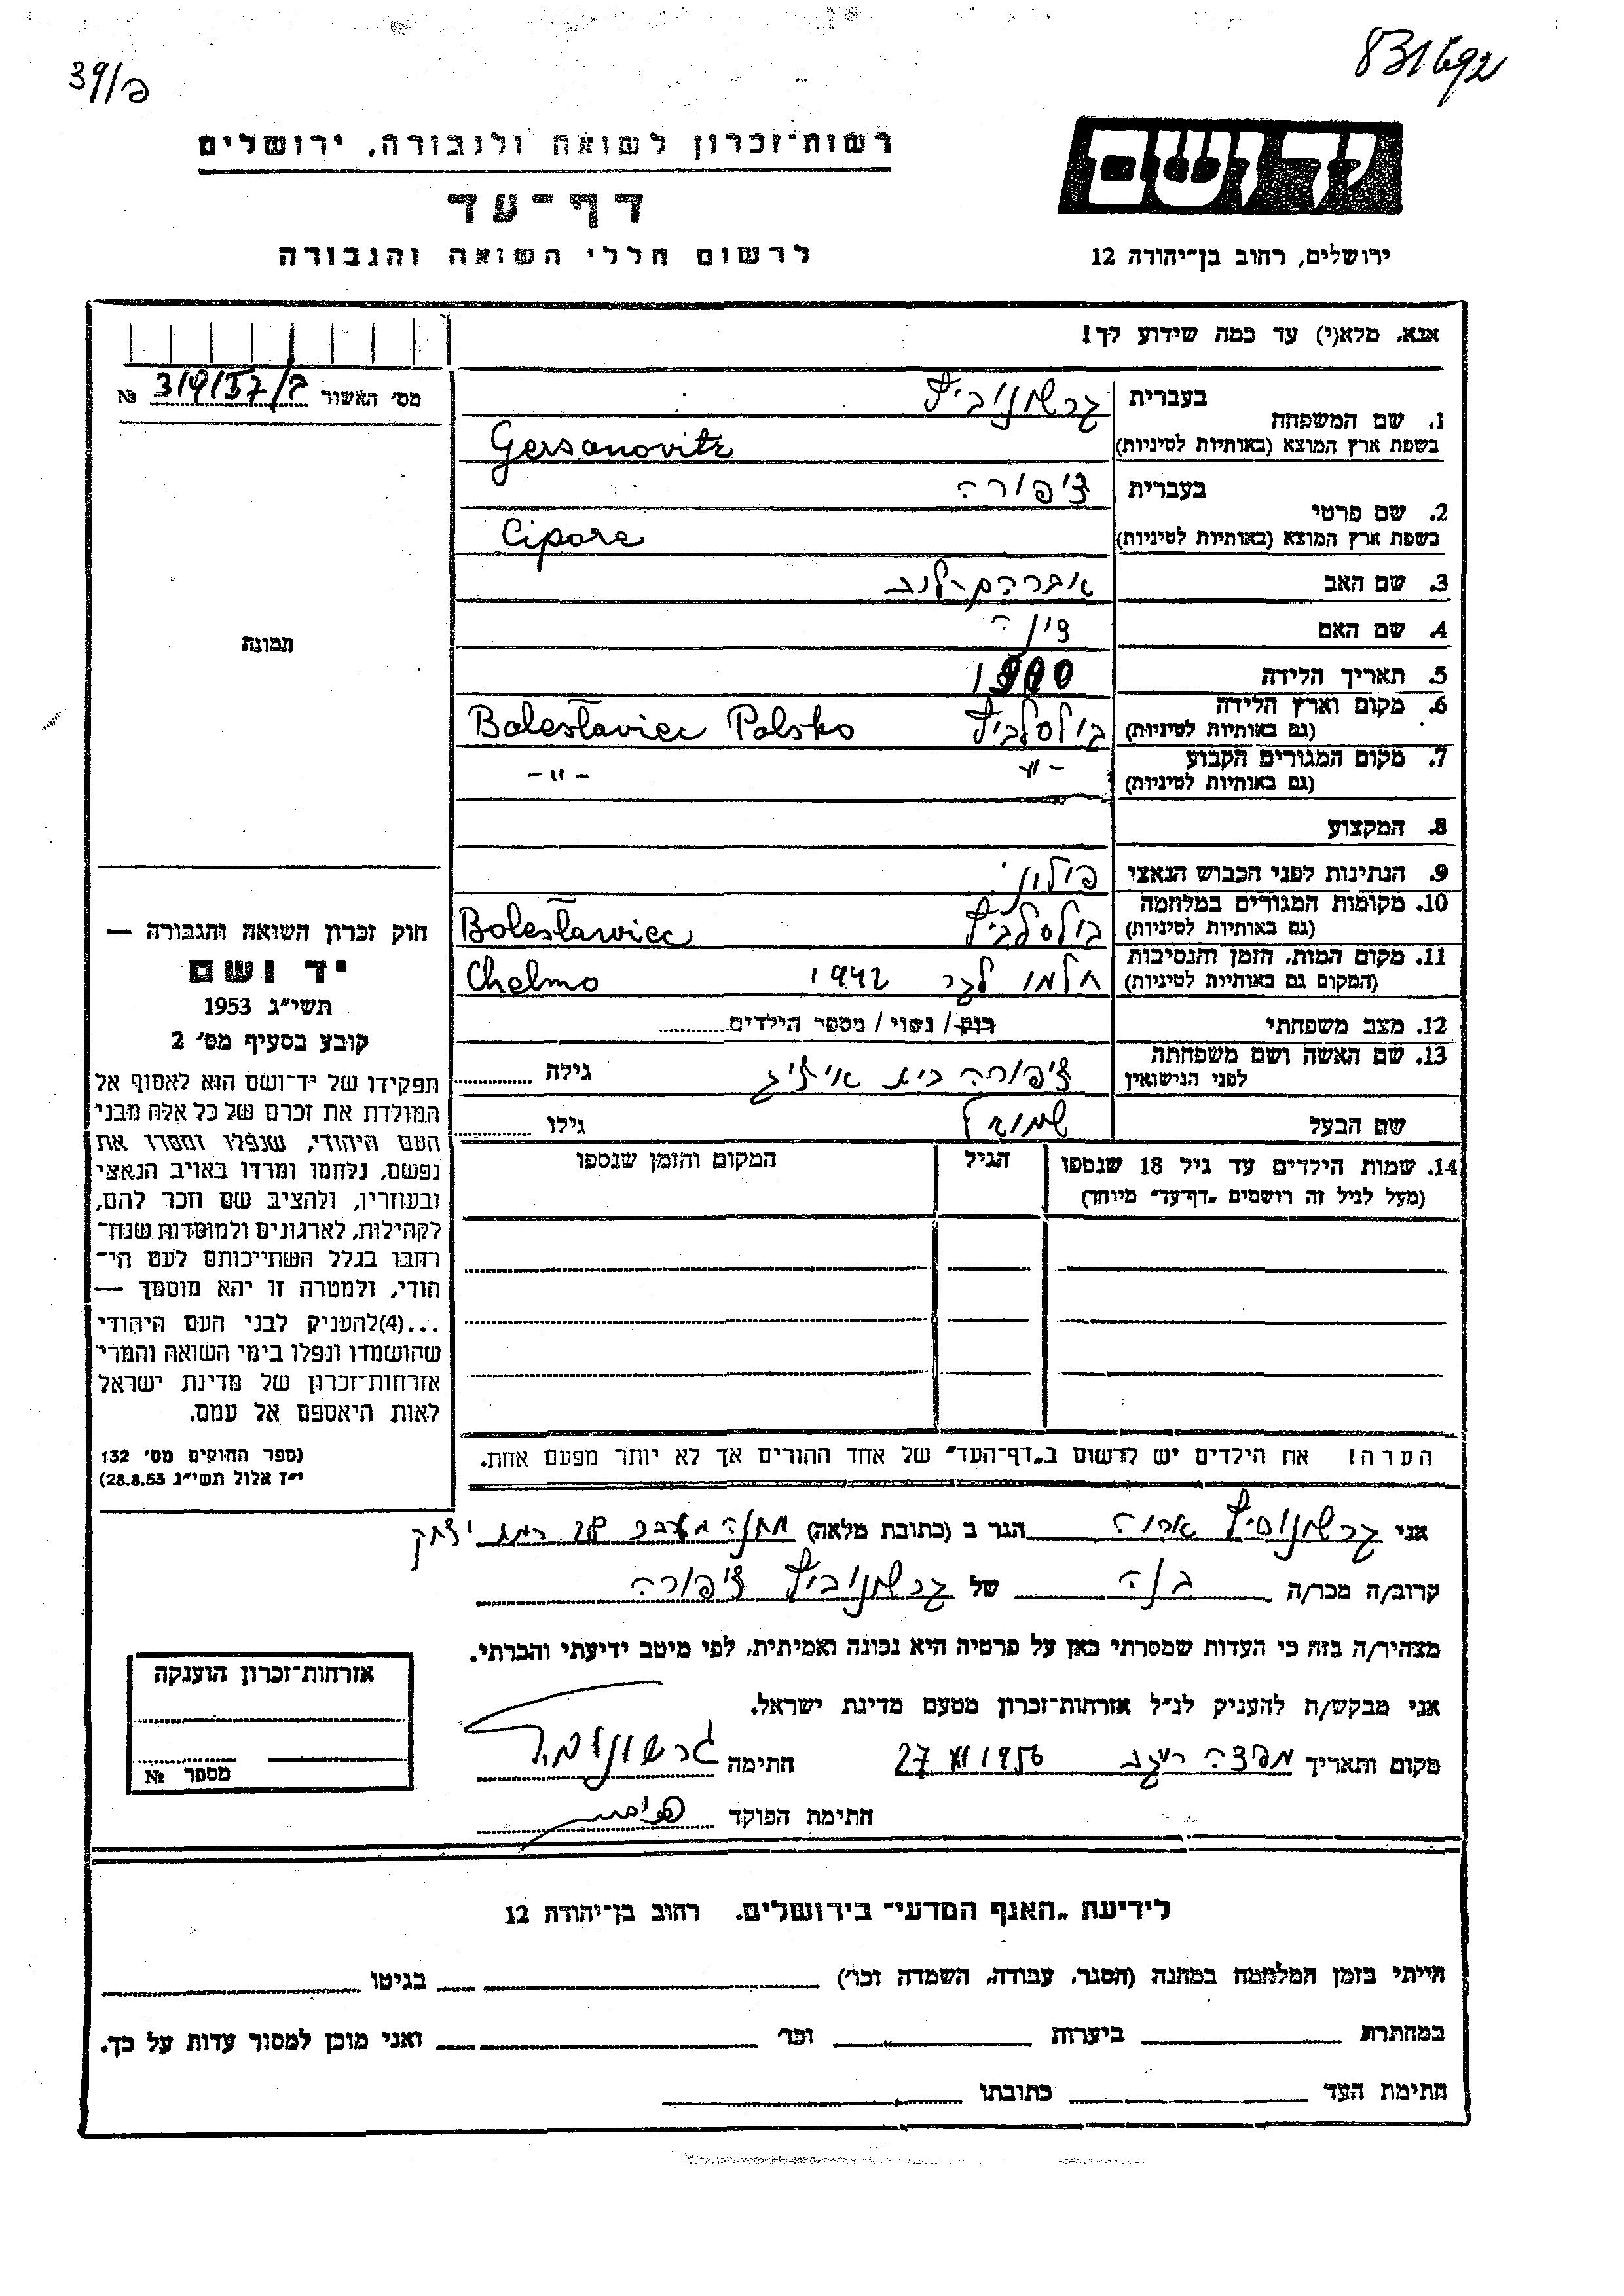 39/פ
831692
רשות־זכרון לשואה ולגבורה, ירושלים
יד ושם
דף־עד
לרשום חללי השואה והגבורה
ירושלים, רחוב בן־יהודה 12
אנא, מלא(י) עד כמה שידוע לך!
מס׳ האשור № 319/57/ב
1. שם המשפחה בעברית גרשונוביץ
בשפת ארץ המוצא (באותיות לטיניות) Gersanovitz
2. שם פרטי בעברית ציפורה
בשפת ארץ המוצא (באותיות לטיניות) Cipora
3. שם האב אברהם־לוב
4. שם האם דינה
תמונה
5. תאריך הלידה 1900
6. מקום וארץ הלידה (גם באותיות לטיניות) בולסלביץ Bolesławiec Polsko
7. מקום המגורים הקבוע (גם באותיות לטיניות) -״- -״-
8. המקצוע
9. הנתינות לפני הכבוש הנאצי פולוני
10. מקומות המגורים במלחמה (גם באותיות לטיניות) בולסלביץ Bolesławiec
11. מקום המות, הזמן והנסיבות (המקום גם באותיות לטיניות) חלמו לגר 1942 Chelmo
12. מצב משפחתי רווק / נשוי / מספר הילדים
13. שם האשה ושם משפחתה לפני הנישואין ציפורה בית איזיג גילה
שם הבעל שמואל גילו
14. שמות הילדים עד גיל 18 שנספו הגיל המקום והזמן שנספו
(מעל לגיל זה רושמים „דף־עד״ מיוחד)
חוק זכרון השואה והגבורה —
יד ושם
תשי״ג 1953
קובע בסעיף מס׳ 2
תפקידו של יד־ושם הוא לאסוף אל
המולדת את זכרם של כל אלה מבני
העם היהודי, שנפלו ומסרו את
נפשם, נלחמו ומרדו באויב הנאצי
ובעוזריו, ולהציב שם וזכר להם,
לקהילות, לארגונים ולמוסדות שנח־
רבו בגלל השתייכותם לעם הי־
הודי, ולמטרה זו יהא מוסמך —
...(4)להעניק לבני העם היהודי
שהושמדו ונפלו בימי השואה והמרי
אזרחות־זכרון של מדינת ישראל
לאות היאספם אל עמם.
(ספר החוקים מס׳ 132
י״ז אלול תשי״ג 28.8.53)
הערה! את הילדים יש לרשום ב„דף־העד״ של אחד ההורים אך לא יותר מפעם אחת.
אני גרשונוביץ הגר ב (כתובת מלאה) רמת יצחק
קרוב/ה מכר/ה בנה של גרשונוביץ ציפורה
מצהיר/ה בזה כי העדות שמסרתי כאן על פרטיה היא נכונה ואמיתית, לפי מיטב ידיעתי והכרתי.
אני מבקש/ת להעניק לנ״ל אזרחות־זכרון מטעם מדינת ישראל.
מקום ותאריך 27 XI 1956 חתימה
חתימת הפוקד
אזרחות־זכרון הוענקה
מספר №
לידיעת „האגף המדעי״ בירושלים. רחוב בן־יהודה 12
הייתי בזמן המלחמה במחנה (הסגר, עבודה, השמדה וכו׳) בגיטו
במחתרת ביערות וכו׳ ואני מוכן למסור עדות על כך.
חתימת העד כתובתו